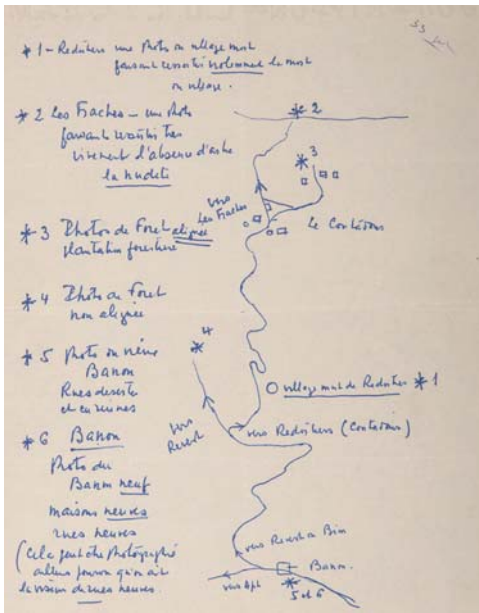 * 1 - Redortiers une photo du village mort
faisant ressortir violemment la mort
du village.
* 2 Les Fraches - une photo
faisant ressortir très
vivement l'absence d'arbre
la nudité
* 3 Photos de Foret alignée
plantation forestière
* 4 Photo de Foret
non alignée
* 5 Photo du vieux
Banon
Rues desertes
et en ruines
* 6 Banon
Photo du
Banon neuf
maisons neuves
rues neuves
(Cela peut être photographié
ailleurs pourvu qu'on ait
la vision de rues neuves.
* 2
* 3
vers
Les Fraches
Le Contadour
* 4
village mort de Redortiers * 1
vers
Revest
vers Redortiers (Contadour)
vers Revest du Bion
Banon
vers Apt
* 5 et 6